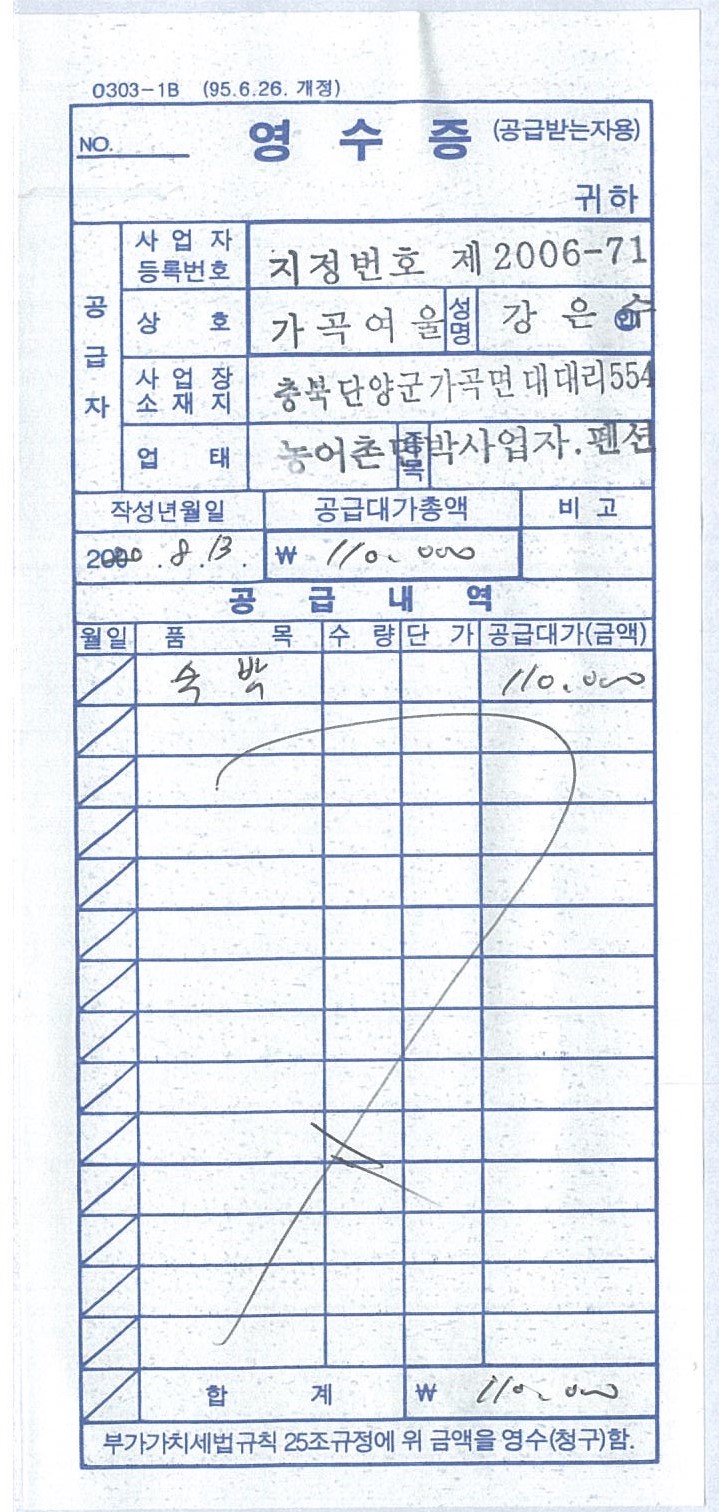 0303-1B (95.6.26. 개정)
NO. 영 수 증 (공급받는자용)
귀하
공급자
사업자등록번호 지정번호 제2006-71
상 호 가곡여울 성명 강은수 인
사업장소재지 충북단양군가곡면대대리554
업 태 농어촌민박사업자.펜션 종목
작성년월일 공급대가총액 비 고
8.13. ₩ 110.000
공 급 내 역
월일 품 목 수 량 단 가 공급대가(금액)
숙박 110.000
합 계 ₩ 110.000
부가가치세법규칙 25조규정에 위 금액을 영수(청구)함.